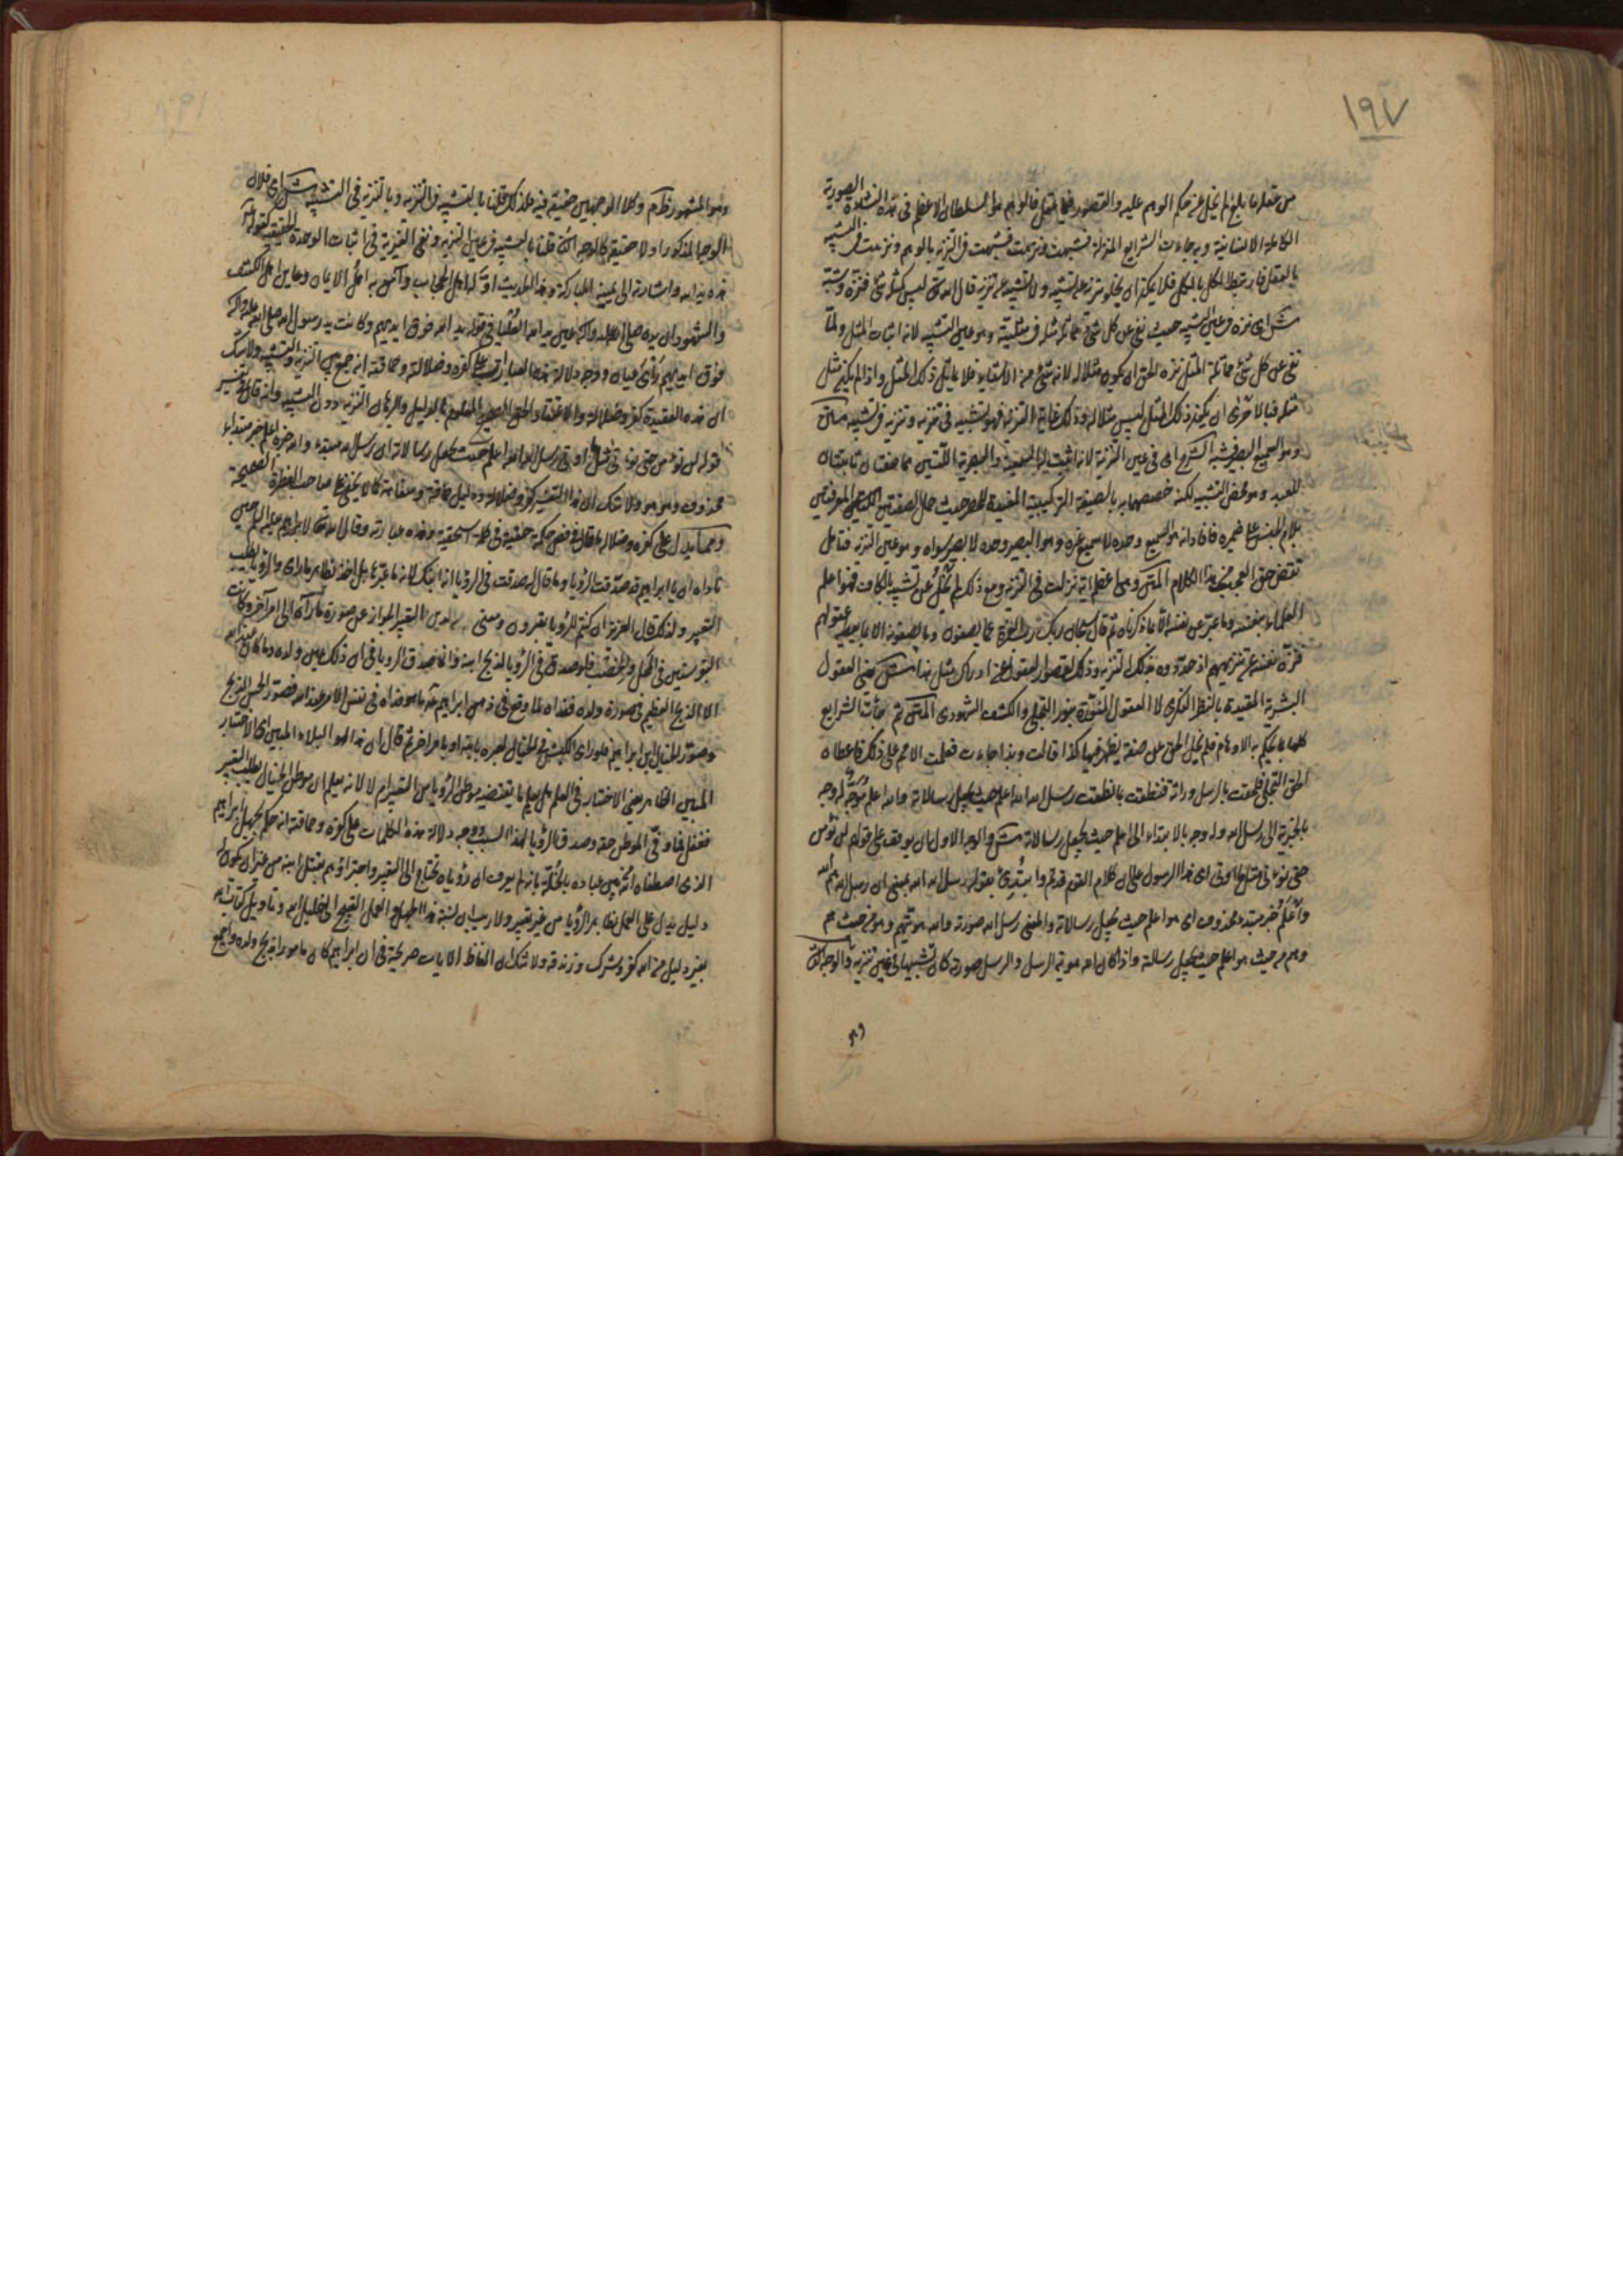 ١٩٧
من عقله ما بلغ لم يخل عن حكم الوهم عليه والتصور فيما عقل فالوهم هو السلطان الاعظم فى هذه النشأة الصورية
الكاملة الانسانية وبه جاءت الشرايع المنزلة فشبهت ونزهت فشبهت فى التنزيه بالوهم ونزهت فى التشبيه
بالعقل فارتبط الكل بالكل فلا يمكن ان يخلو تنزيه عن تشبيه ولا تشبيه عن تنزيه قال الله تعالى ليس كمثله شئ فنزه وشبه
ش اى نزه فى عين التشبيه حيث نفى عن كل شئ مماثلة مثله فى مثليته وهو عين التشبيه لانه اثبات المثل ولما
نفى عن كل شئ مماثلة المثل نزه الحق ان يكون مثلا له لانه شئ من الاشياء فلا يماثل ذلك المثل واذا لم يكن مثل
مثله فبالاحرى ان يكون ذلك المثل ليس مثلا له وذلك غاية التنزيه فهو تشبيه فى تنزيه وتنزيه فى تشبيه متن
وهو السميع البصير فشبه ش اى فى عين التنزيه لانه اثبت له السمعية والبصرية اللتين هما صفتان ثابتتان
للعبد وهو محض التشبيه لكنه خصصهما به بالصيغة التركيبية المفيدة للحصر حيث حمل الصفتين المعرفتين
بلام الجنس على ضميره فافاد انه هو السميع وحده لا سميع غيره وهو البصير وحده لا بصير سواه وهو عين التنزيه فتامل
المتن وهى اعظم اية نزلت فى التنزيه ومع ذلك لم تخل عن تشبيه بالكاف فهو اعلم
العلماء بنفسه وما عبر عن نفسه الا بما ذكرناه ثم قال سبحان ربك رب العزة عما يصفون وما يصفونه الا بما يعطيه عقولهم
فنزه نفسه عن تنزيههم اذ حددوه بذلك التنزيه وذلك لقصور العقول عن ادراك مثل هذا ش يعنى العقول
البشرية المقيدة بالنظر الفكرى لا العقول المنورة بنور التجلى والكشف الشهودى المتن ثم جاءت الشرايع
كلها بما يحكم به الاوهام فلم يخل الحق عن صفة يظهر فيها كذا قالت وبذا جاءت فعملت الامم على ذلك فاعطاها
الحق التجلى فلحقت بالرسل وراثة فنطقت بما نطقت رسل الله الله اعلم حيث يجعل رسالاته والله اعلم موجه له وجه
بالخبرية الى رسل الله وله وجه بالابتداء الى اعلم حيث يجعل رسالاته ش والوجه الاول ان يوقف على قوله لن نؤمن
حتى نؤتى مثل ما اوتى اى هذا الرسول على ان كلام القوم قد تم وابتدئ بقوله رسل الله الله بمعنى ان رسل الله هم الله
واعلم خبر مبتدء محذوف اى هو اعلم حيث يجعل رسالاته والمعنى رسل الله صورة والله هويتهم وهو من حيث هم
وهم من حيث هو اعلم حيث يجعل رسالاته واذا كان الله هوية الرسل والرسل صورة كان تشبيها فى عين تنزيه والوجه الثانى
وهو المشهور ظ م وكلا الوجهين حقيقة فيه فلذلك قلنا بالتشبيه فى التنزيه وبالتنزيه فى التشبيه ش اى فلان
الوجه المذكور اولا حقيقة كالوجه الثانى قلنا بالتشبيه فى عين التنزيه ونفى الغيرية فى اثبات الوحدة الحقيقية كقوله
هذه يد الله واشارته الى يمينه المباركة وهذا الحديث اوله اهل الحجاب وآمن به اهل الايمان وعاين اهل الكشف
والشهود ان يده صلى الله عليه وآله عين يد الله العليا فى قوله يد الله فوق ايديهم وكانت يد رسول الله صلى الله عليه وآله
فوق ايديهم رأى عيان ووجه دلالة هذه العبارات على كفره وضلالته وحماقته انه جمع بين التنزيه والتشبيه ولا شك
ان هذه العقيدة كفر وضلالة والاعتقاد الحق المعلوم بالدليل والبرهان التنزيه دون التشبيه وانه قال فى تفسير
قوله لن نؤمن حتى نؤتى مثل ما اوتى رسل الله الله اعلم حيث يجعل رسالاته ان رسل الله مبتدء والله خبره واعلم خبر مبتداء
محذوف وهو هو ولا شك ان هذا التفسير كفر وضلالة ودليل حماقة وسفاهة كما لا يخفى على صاحب الفطرة الصحيحة
ومما يدل على كفره وضلاله ما قال فى فص حكمة حقية فى كلمة اسحقية وهذه عبارته وقال الله تعالى لابراهيم عليه السلم حين
ناداه ان يا ابراهيم قد صدقت الرؤيا وما قال له صدقت فى الرؤيا انه ابنك لانه ما عبرها بل اخذ بظاهر ما راى والرؤيا يطلب
التعبير ولذلك قال العزيز ان كنتم للرؤيا تعبرون ومعنى التعبير الجواز عن صورة ما رآه الى امر آخر وكانت
البقر سنين فى المحل والخصب فلو صدق فى الرؤيا لذبح ابنه وانما صدق الرؤيا فى ان ذلك عين ولده وما كان عند الله
الا الذبح العظيم فى صورة ولده ففداه لما وقع فى ذهن ابراهيم ما هو فداء فى نفس الامر عند الله فصور الحس الذبح
وصور الخيال ابن ابراهيم فلو راى الكبش فى الخيال لعبره بابنه او بامر اخر ثم قال ان هذا لهو البلاء المبين اى الاختبار
المبين الظاهر يعنى الاختبار فى العلم هل يعلم ما يقتضيه موطن الرؤيا من التعبير ام لا لانه يعلم ان موطن الخيال يطلب التعبير
فغفل فما وفى الموطن حقه وصدق الرؤيا لهذا السبب ووجه دلالة هذه الكلمات على كفره وحماقته انه حكم بجهل ابراهيم
الذى اصطفاه الله من بين عباده بالخلة بانه لم يعرف ان رؤياه تحتاج الى التعبير واجتراؤهم بقتل ابنه من غير ان يكون له
دليل يدل على العمل بظاهر الرؤيا من غير تعبير ولا ريب ان نسبة هذا الجهل والعمل القبيح الى خليل الله وتاويل كتاب الله
بغير دليل من الله كفر وشرك وزندقة ولا شك ان الفاظ الايات صريحة فى ان ابراهيم كان مامورا بذبح ولده واجمع